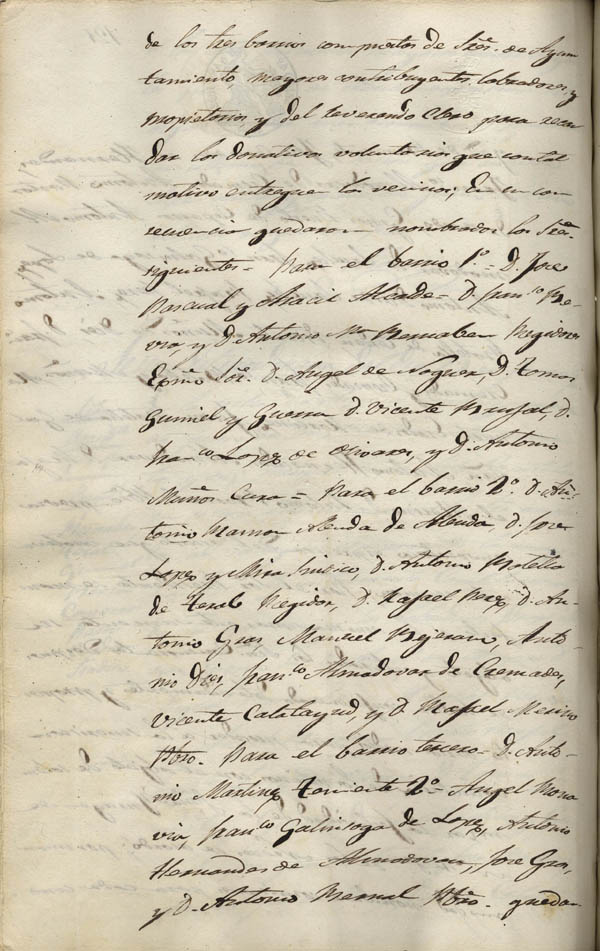 de los tres barrios compuestos de Sres. de Ayun
tamiento, mayores contribuyentes, labradores, y
propietarios, y del reverendo Clero para recau
dar los donativos voluntarios que con tal
motivo entreguen los vecinos; En su con
secuencia quedaron nombrados los Sres.
siguientes = Para el barrio 1º = D. Jose
Pascual y Alcalde = D. Franco
y D. Antonio Mª Bernabeu Regidores
Exmo Sor. D. Angel de Noguera, D. Tomas
Gumiel y Guerra D. Vicente Brufal, D.
Franco Lopez de Olivares, y D. Antonio
Muños Cura = Para el barrio 2º. D. An
tonio Ramon Alenda de Alenda, D. Jose
Lopez y Mira Sindico, D. Antonio Botella
de Regidor, D. Rafael Perez D. An-
tonio Gras Manuel Antо-
nio Diez, Franco Almodovar de Cremades,
Vicente Calatayud, y D. Rafael
Pbro. Para el barrio tercero = D. Anto-
nio Martinez Teniente 2º = Angel Mora
Franco Galinsoga de Lopez, Antonio
Hernandez de Almodovar, Jose Gras,
y D. Antonio Bernal Pbro. quedan